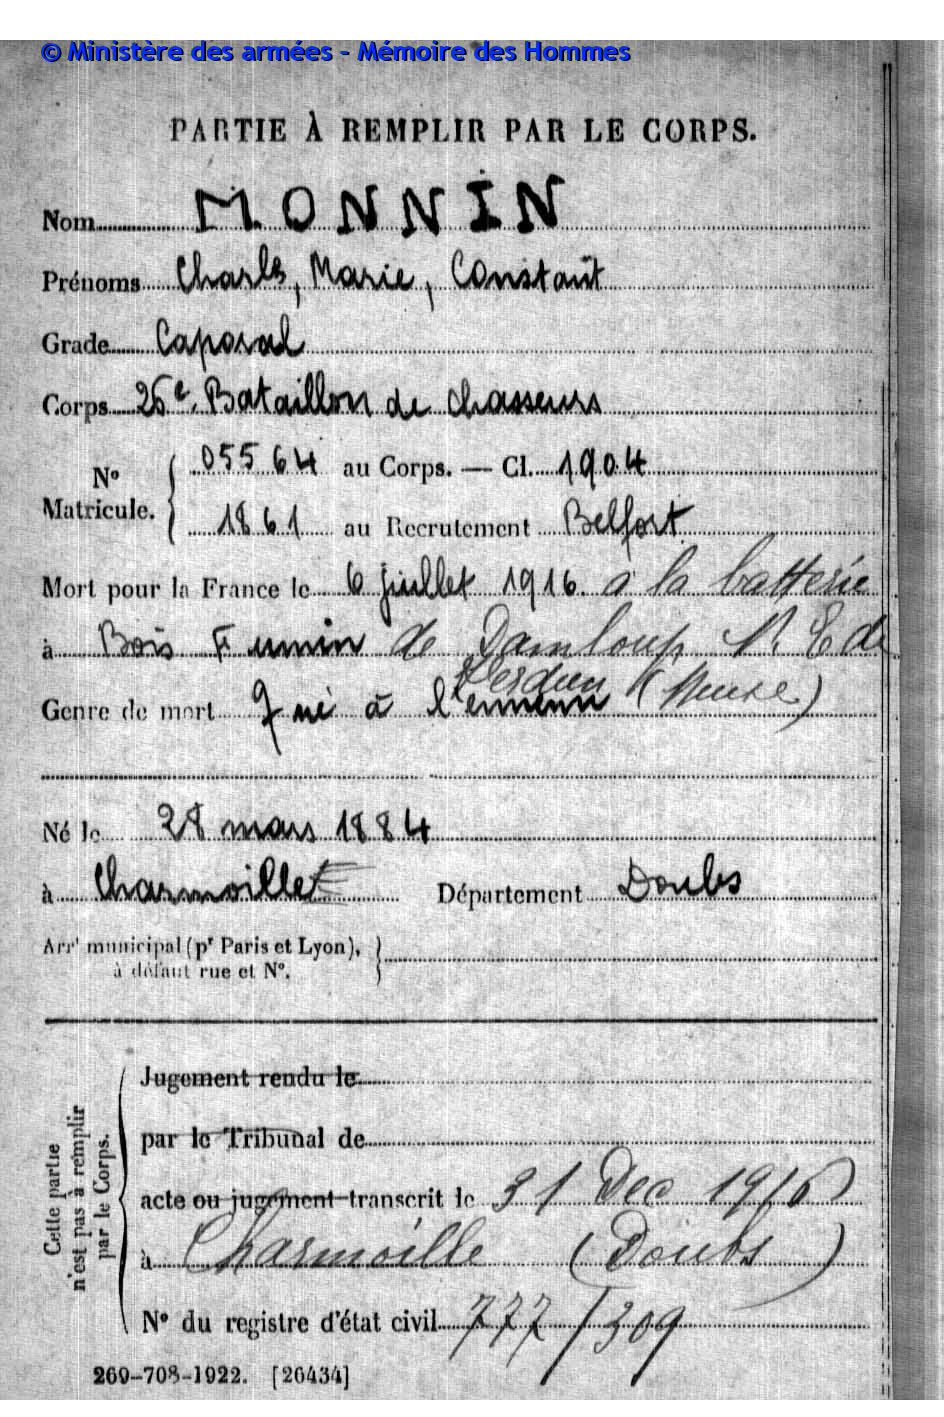 © Ministère des armées - Mémoire des Hommes
PARTIE À REMPLIR PAR LE CORPS.
Nom MONNIN
Prénoms Charles, Marie, Constant
Grade Caporal
Corps 26e Bataillon de chasseurs
No Matricule. { 05564 au Corps. — Cl. 1904
1861 au Recrutement Belfort
Mort pour la France le 6 juillet 1916 a la batterie
à Bois Fumin de Damloup N. E de
Verdun (Meuse)
Genre de mort Tué à l'ennemi
Né le 28 mars 1884
à Charmoille Département Doubs
Arrt municipal (pr Paris et Lyon),
à défaut rue et No.
Cette partie
n'est pas à remplir
par le Corps.
Jugement rendu le
par le Tribunal de
acte ou jugement transcrit le 31 Dec 1916
à Charmoille (Doubs)
No du registre d'état civil 777/309
269-708-1922. [26434]